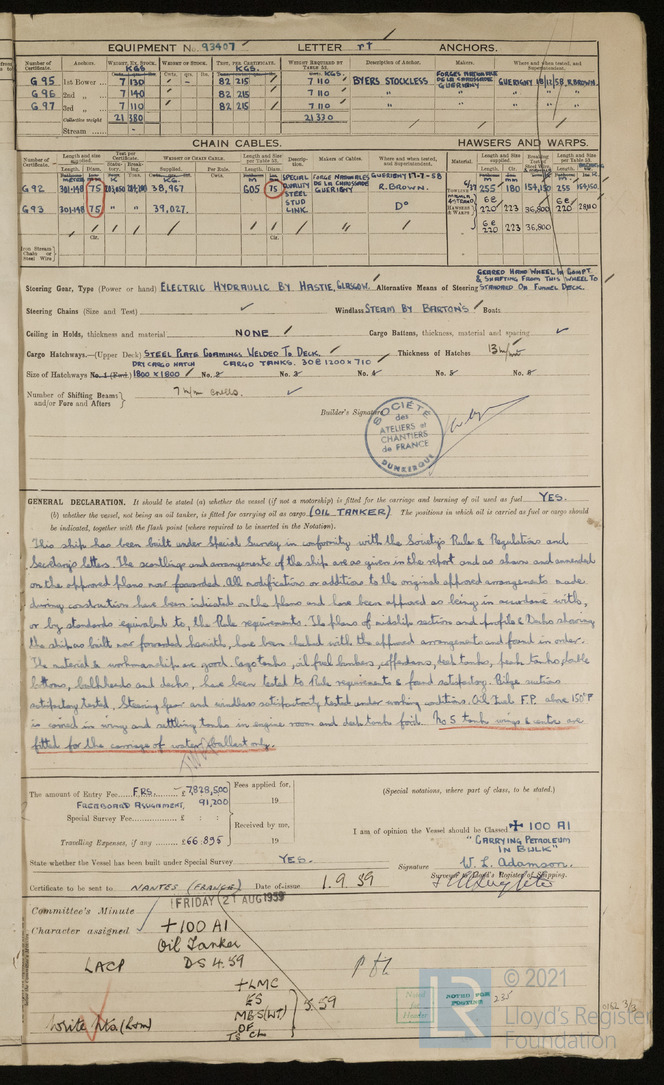 EQUIPMENT No. 93407 LETTER r† ANCHORS.
Number of Certificate. Anchors. WEIGHT, EX. STOCK. WEIGHT OF STOCK. TEST, PER CERTIFICATE. WEIGHT REQUIRED BY TABLE 53. Description of Anchor. Makers. Where and when tested, and Superintendent.
KGS KGS. KGS.
G 95 1st Bower 7 130 82 215 7 110 BYERS STOCKLESS FORGES NATIONALE DE LA CHAUSSADE GUERIGNY GUERIGNY 18/12/58. R. BROWN.
G 96 2nd " 7 140 82 215 7 110 " " "
G 97 3rd " 7 110 82 215 7 110 " " "
Collective weight 21 380 21 330
Stream
CHAIN CABLES. HAWSERS AND WARPS.
Number of Certificate. Length and size supplied. Test per Certificate. WEIGHT OF CHAIN CABLE. Length and Size per Table 53. Description. Makers of Cables. Where and when tested, and Superintendent. Material. Length and Size supplied. Breaking Test Length and size per Table 53.
Length. Diam. Statutory. Breaking. Supplied. Per Rule. Length. Diam. Length. Cir.
G 92 301·148 75 38,967 605 75 SPECIAL QUALITY STEEL STUD LINK. FORGE NATIONALES DE LA CHAUSSADE GUERIGNY GUERIGNY 17-7-58 R. BROWN. 6/37 255 180 154,150 255 154,150
G 93 301·148 75 " " 39,027. Do 6e 220 223 36,800 6e 220
6e 220 223 36,800
Iron Stream Chain or Steel Wire
Steering Gear, Type (Power or hand) ELECTRIC HYDRAULIC BY HASTIE, GLASGOW. Alternative Means of Steering GEARED HAND WHEEL IN COMPT. & SHAFTING FROM THIS WHEEL TO STANDARD ON FUNNEL DECK.
Steering Chains (Size and Test) Windlass STEAM BY BARTON'S Boats
Ceiling in Holds, thickness and material NONE Cargo Battens, thickness, material and spacing
Cargo Hatchways.—(Upper Deck) STEEL PLATE COAMINGS WELDED TO DECK. Thickness of Hatches 13 m/m
DRY CARGO HATCH CARGO TANKS. 30 @ 1200 x 710
Size of Hatchways No. 1 (Fwd.) 1800 x 1800 No. 2 No. 3 No. 4 No. 5 No. 6
Number of Shifting Beams and/or Fore and Afters
Builder's Signature
SOCIÉTÉ des ATELIERS et CHANTIERS de FRANCE DUNKERQUE
GENERAL DECLARATION. It should be stated (a) whether the vessel (if not a motorship) is fitted for the carriage and burning of oil used as fuel YES.
(b) whether the vessel, not being an oil tanker, is fitted for carrying oil as cargo. (OIL TANKER) The positions in which oil is carried as fuel or cargo should
be indicated, together with the flash point (where required to be inserted in the Notation).
This ship has been built under Special Survey in conformity with the Society's Rules & Regulations and
Secretary's letters. The scantlings and arrangements of the ship are as given in the report and as shown and amended
on the approved plans now forwarded. All modifications or additions to the original approved arrangements made
during construction have been indicated on the plans and have been approved as being in accordance with,
or by standards equivalent to, the Rule requirements. The plans of midship section and profile & Decks showing
the ship as built now forwarded herewith, have been checked with the approved arrangements and found in order.
The material & workmanship are good. Cargo tanks, oil fuel bunkers, cofferdams, deep tanks, peak tanks, double
bottoms, bulkheads and decks, have been tested to Rule requirements & found satisfactory. Bilge suctions
satisfactorily tested. Steering gear and windlass satisfactorily tested under working conditions. Oil Fuel F.P. above 150°F
is carried in wing and settling tanks in engine room and deep tanks for'd. No 5 tank wings & centre are
fitted for the carriage of water ballast only.
The amount of Entry Fee FRS. £ 7,828,500 Fees applied for,
FREEBOARD ASSIGNMENT, 91,200 19
Special Survey Fee £ : : Received by me,
Travelling Expenses, if any £ 66.895 19
(Special notations, where part of class, to be stated.)
I am of opinion the Vessel should be Classed ✠ 100 A1
"CARRYING PETROLEUM IN BULK"
State whether the Vessel has been built under Special Survey YES.
Signature W. L. Adamson.
Surveyor to Lloyd's Register of Shipping.
Certificate to be sent to NANTES (FRANCE) Date of issue 1. 9. 59
Committee's Minute FRIDAY 21 AUG 1959
Character assigned +100 A1
Oil Tanker
LACP DS 4.59
+LMC
ES
MBS (WT)
OF
TS CL
5.59
Write Nts. (Lon)
NOTED FOR POSTING
235
0162 3/3
© 2021
LR
Lloyd's Register
Foundation